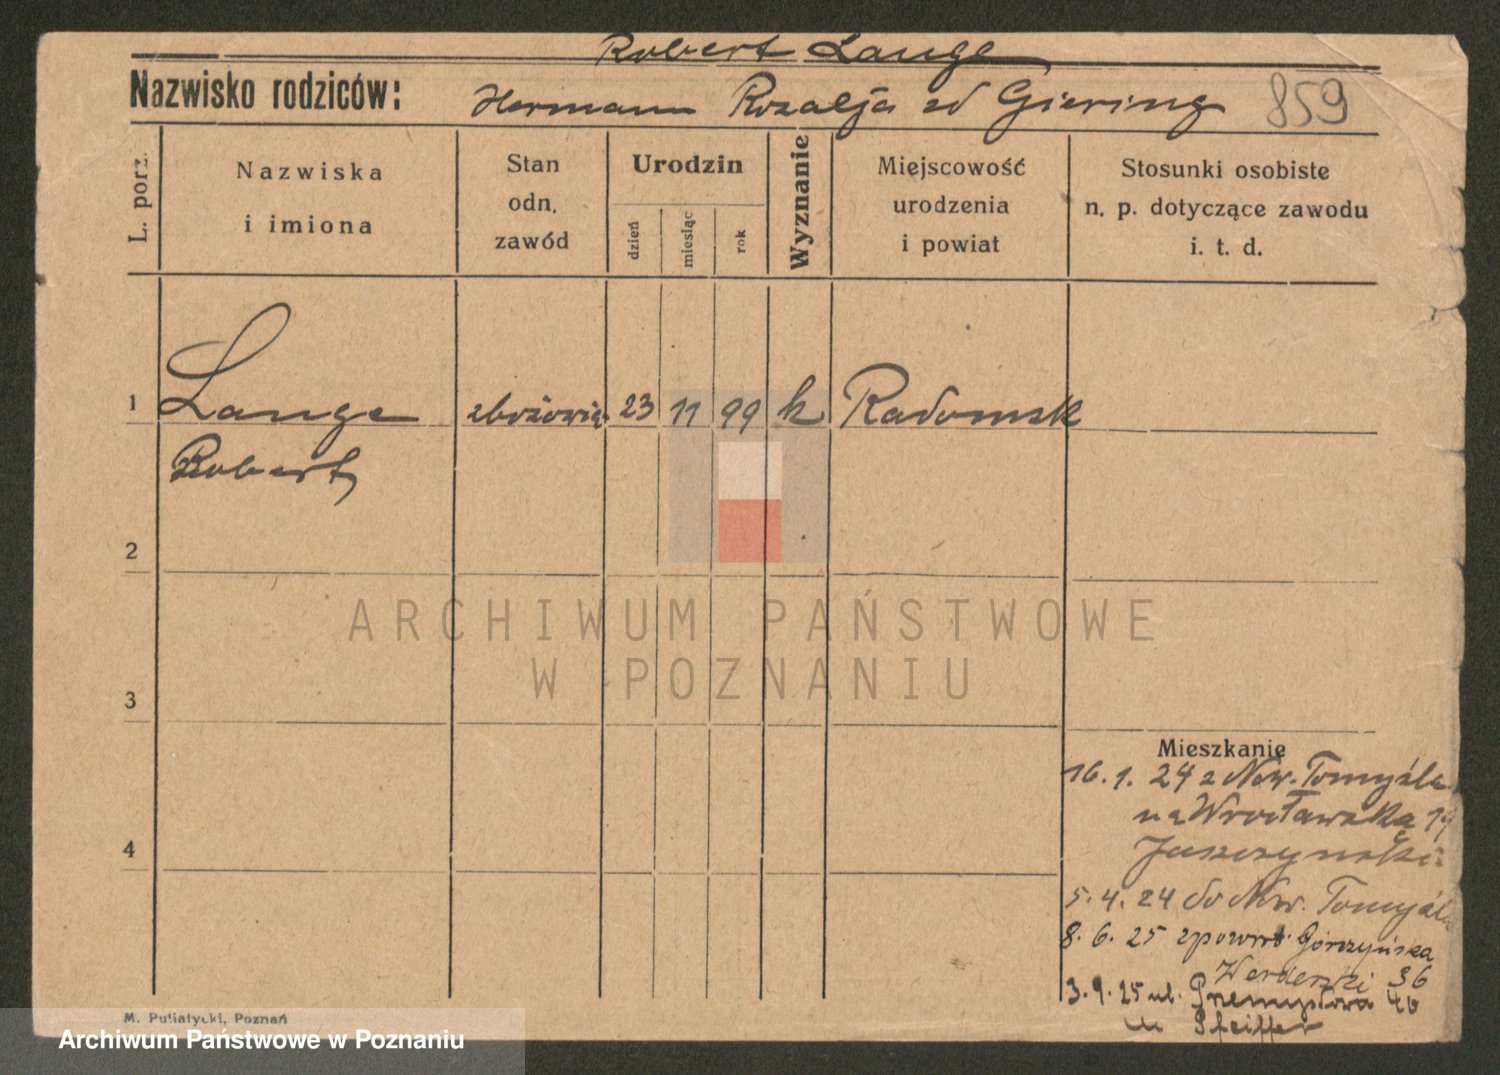 Robert Lange
Nazwisko rodziców: Herman Rozalja zd Giering 859
L. porz.
Nazwiska i imiona
Stan odn. zawód
Urodzin
dzień miesiąc rok
Wyznanie
Miejscowość urodzenia i powiat
Stosunki osobiste n. p. dotyczące zawodu i. t. d.
1 Lange zbożowiec 23 11 99 k Radomsk
Robert
2
3
4
Mieszkanie
16.1.24 z Now. Tomyśla
na Wrocławska 19
5.4.24 do Now. Tomyśla
8.6.25 zpowrt. Górczyńska
36
3.9.25 ul. Przemysłowa 40
u Pfeiffer
M. Putiatycki, Poznań
ARCHIWUM PAŃSTWOWE
W POZNANIU
Archiwum Państwowe w Poznaniu